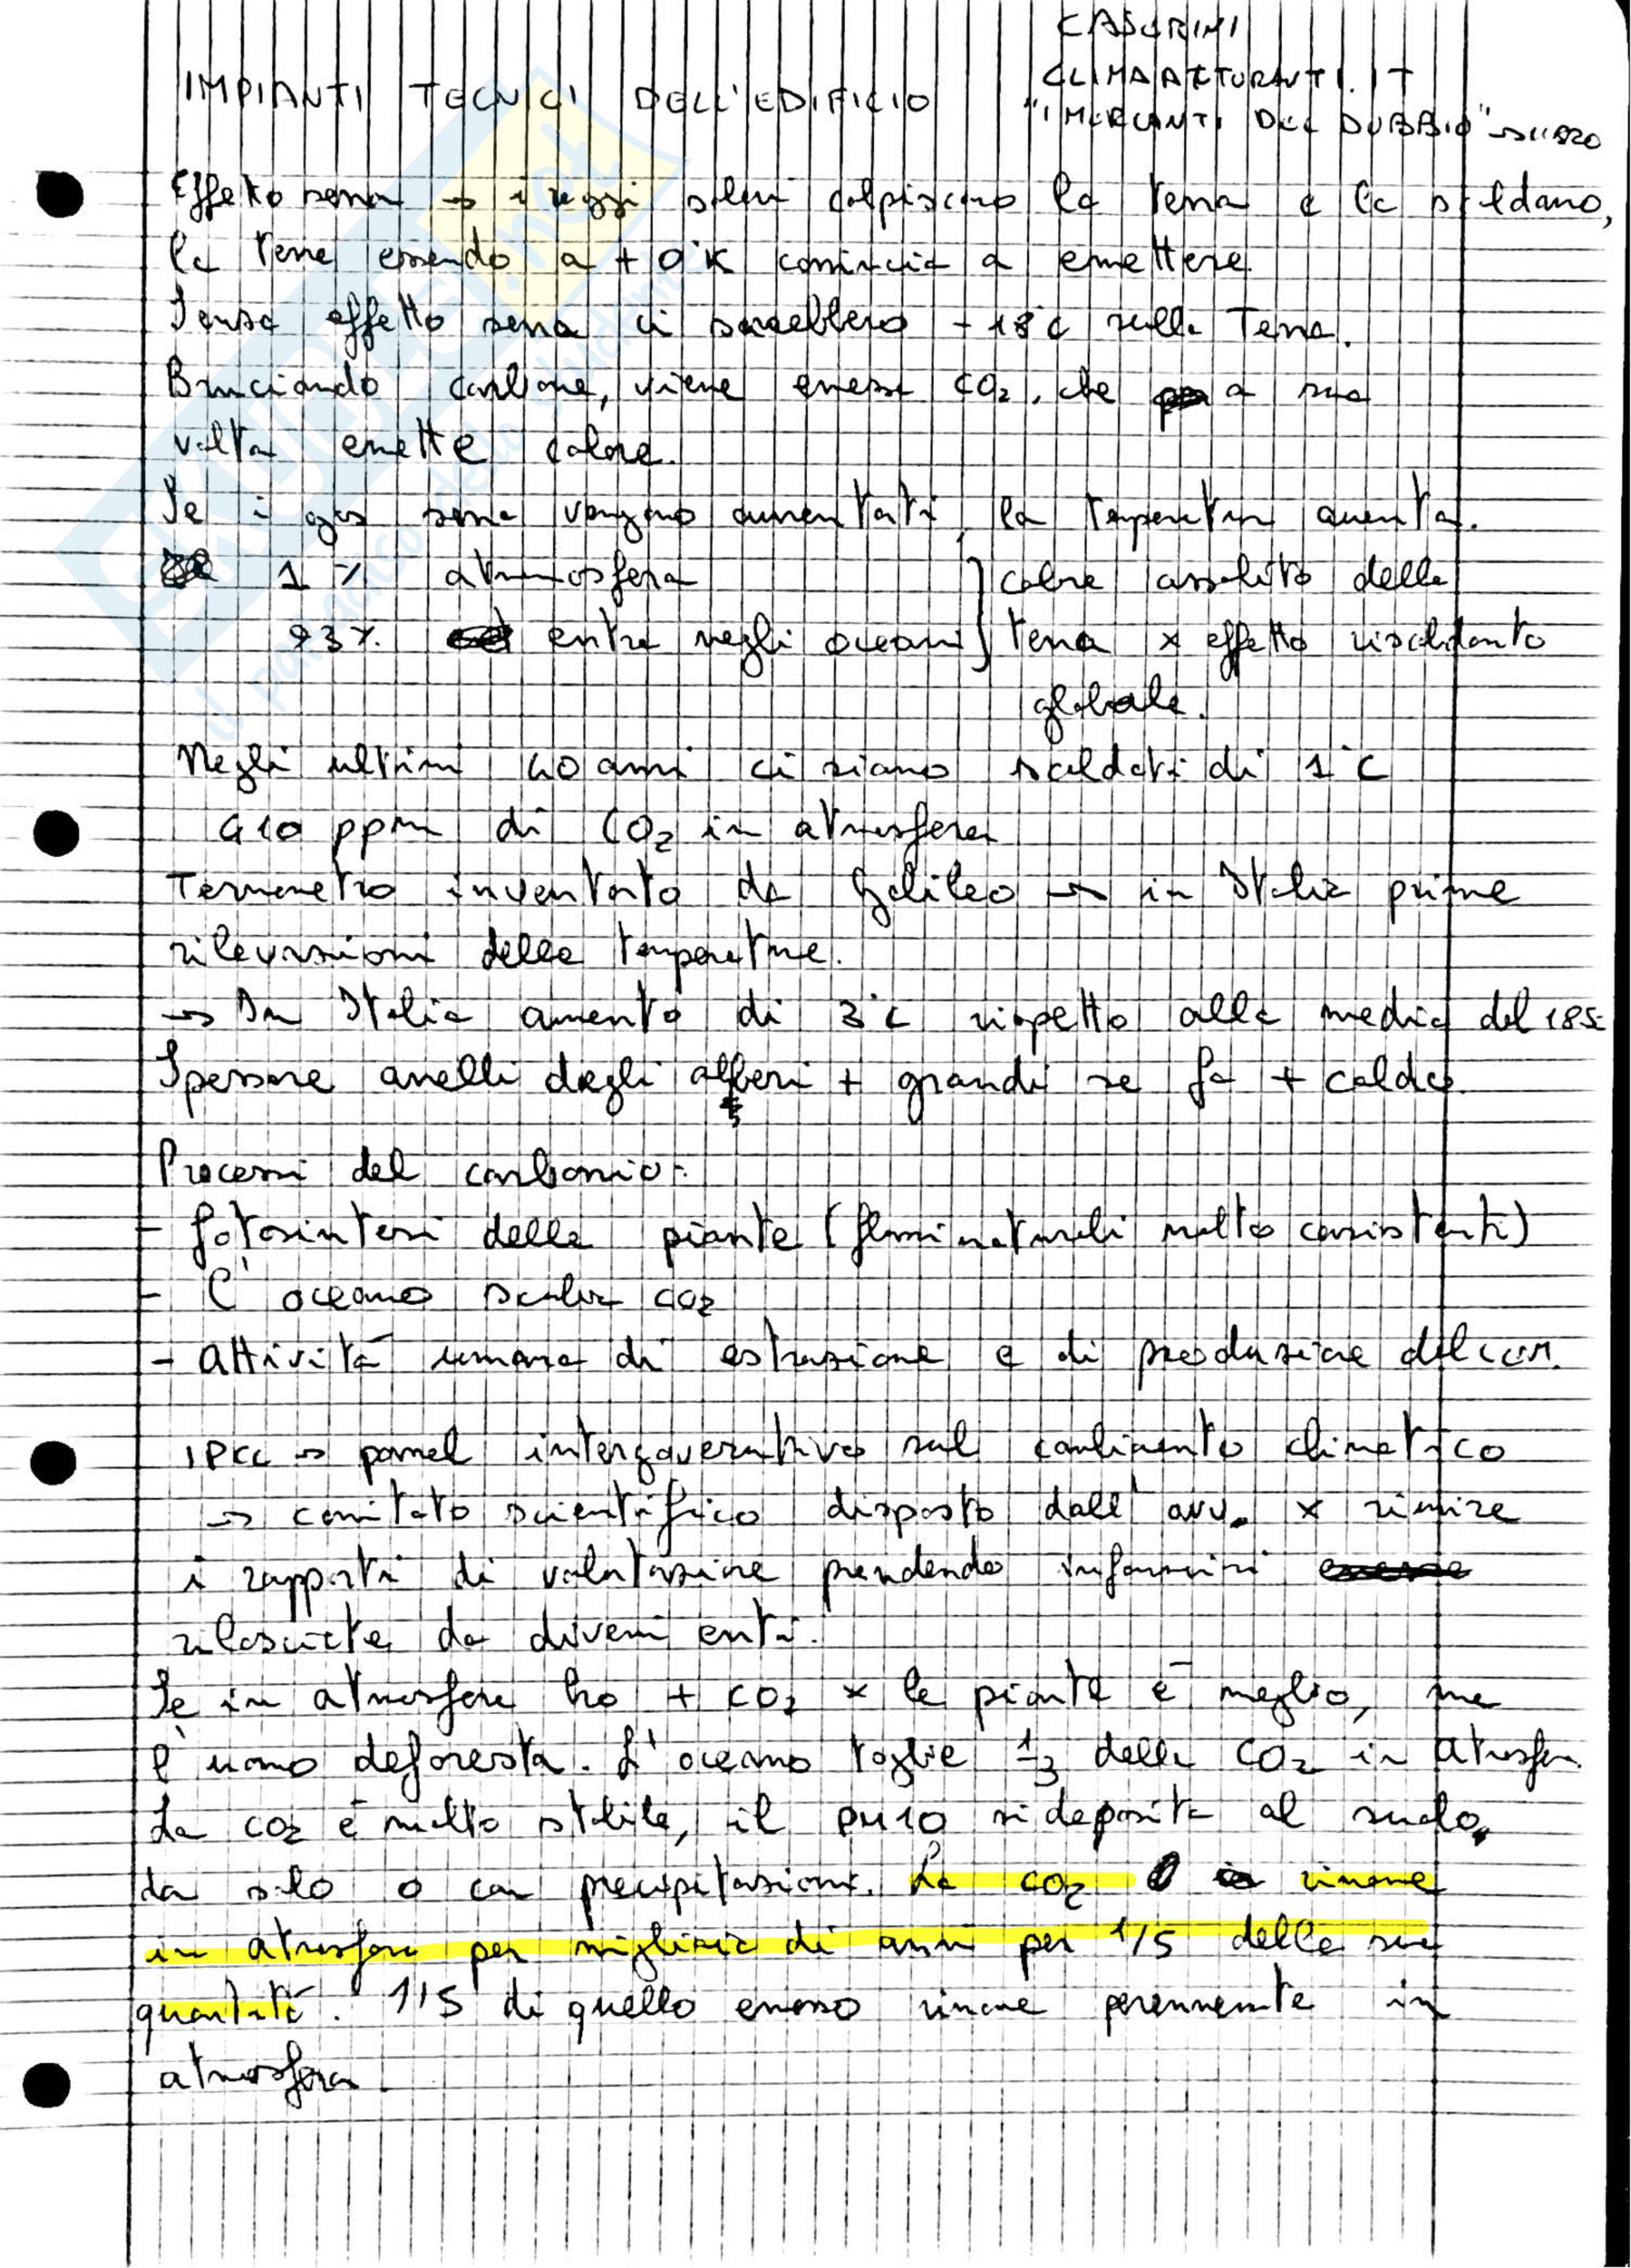 CASERINI
CLIMALTERANTI.IT
IMPIANTI TECNICI DELL'EDIFICIO
"I MERCANTI DEL DUBBIO"
Effetto serra → i raggi solari colpiscono la terra e la scaldano,
la terra essendo a + 0°K comincia a emettere
Senza effetto serra ci sarebbero -18°C sulla Terra.
Bruciando carbone, viene emessa CO₂, che a sua
volta emette calore.
Se i gas serra vengono aumentati, la temperatura aumenta.
1% atmosfera
calore assorbito della
93% entra negli oceani
terra x effetto riscaldamento
globale.
Negli ultimi 40 anni ci siamo scaldati di 1°C
410 ppm di CO₂ in atmosfera
Termometro inventato da Galileo → in Italia prime
rilevazioni delle temperature.
→ In Italia aumento di 3°C rispetto alla media del 185
Spessore anelli degli alberi + grandi se fa + caldo.
Processi del carbonio:
- fotosintesi delle piante (flussi naturali molto consistenti)
- L'oceano scambia CO₂
- Attività umana di estrazione e di produzione del cem.
IPCC → panel intergovernativo sul cambiamento climatico
→ comitato scientifico disposto dall' x riunire
i rapporti di valutazione prendendo informazioni
rilasciate da diversi enti.
Se in atmosfera ho + CO₂ x le piante è meglio, ma
l'uomo deforesta. L'oceano toglie 1/3 della CO₂ in atmosfera
La CO₂ è molto stabile, il PM10 si deposita al suolo,
da solo o con precipitazioni. La CO₂ rimane
in atmosfera per migliaia di anni per 1/5 della sua
quantità. 1/5 di quello emesso rimane perennemente in
atmosfera.
SKUOLA.net
il paradiso dello studente